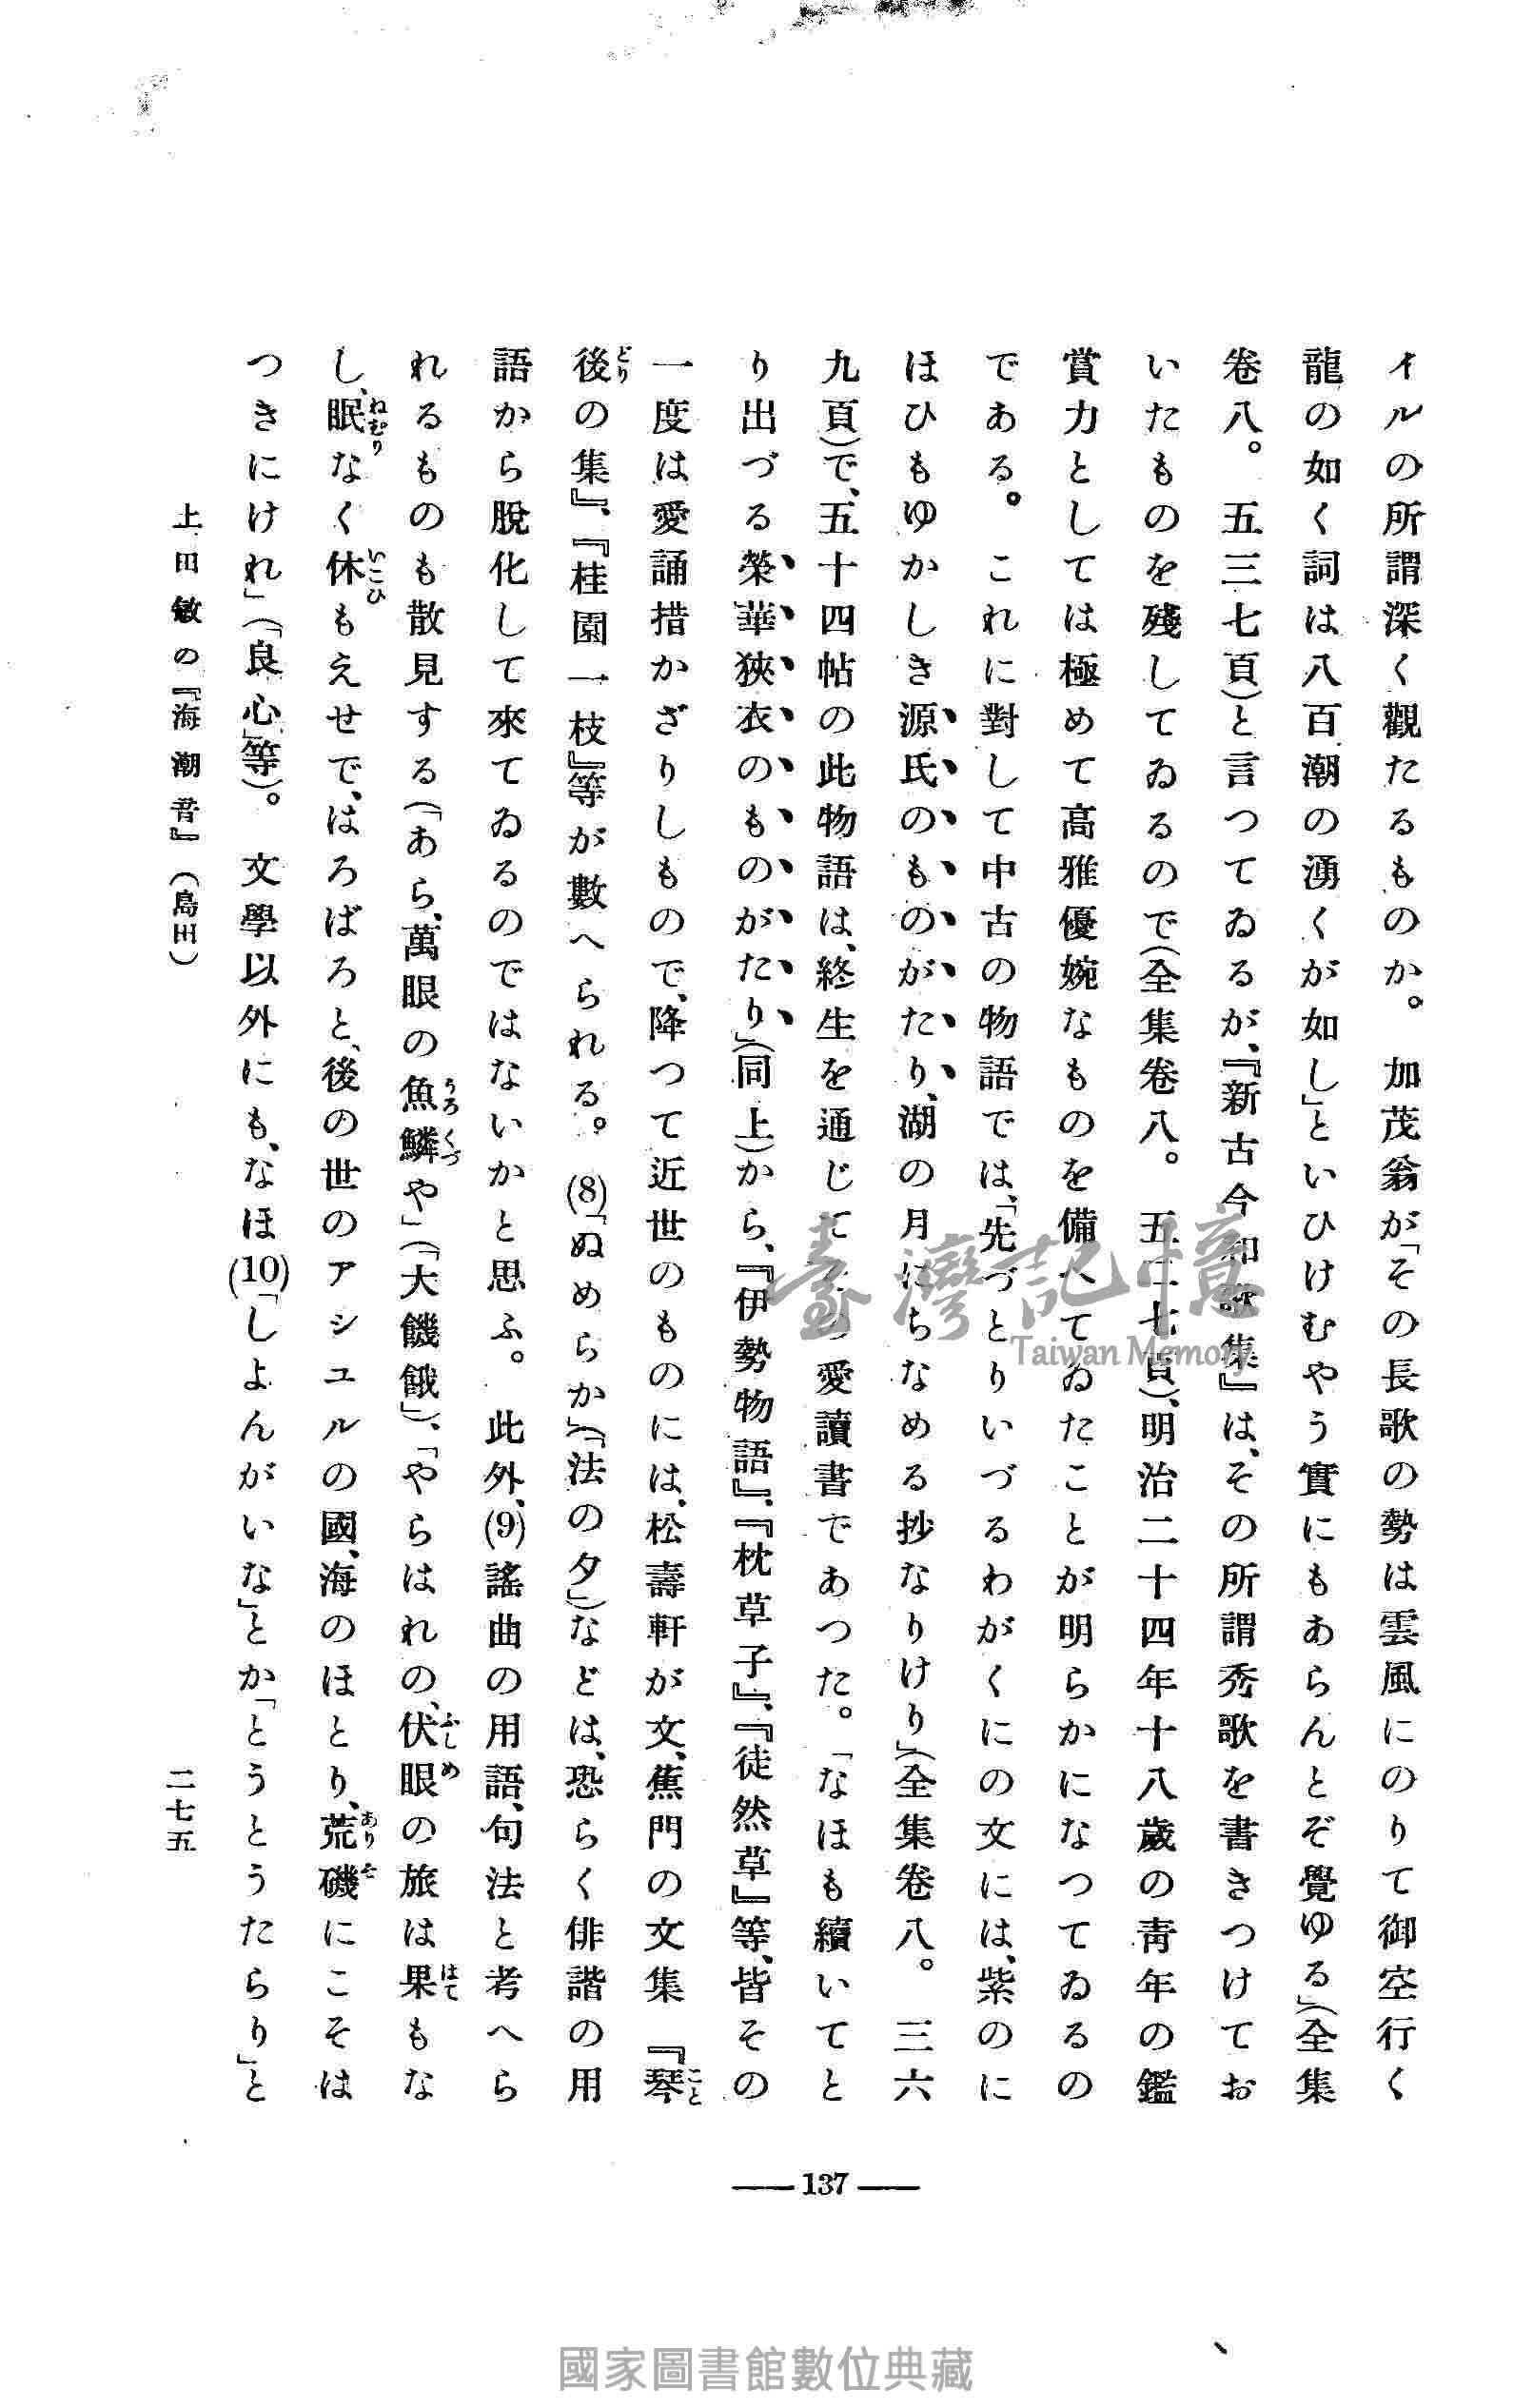 イルの所謂深く觀たるものか。　加茂翁が「その長歌の勢は雲風にのりて御空行く
龍の如く詞は八百潮の湧くが如し」といひけむやう實にもあらんとぞ覺ゆる」(全集
卷八。　五三七頁)と言つてゐるが、『新古今和歌集』は、その所謂秀歌を書きつけてお
いたものを殘してゐるので(全集卷八。　五二七頁)、明治二十四年十八歲の靑年の鑑
賞力としては極めて高雅優婉なものを備へてゐたことが明らかになつてゐるの
である。　これに對して中古の物語では、「先づとりいづるわがくにの文には、紫のに
ほひもゆかしき源氏のものがたり、湖の月にちなめる抄なりけり」(全集卷八。　三六
九頁)で、五十四帖の此物語は、終生を通じての愛讀書であつた。「なほも續いてと
り出づる榮華狹衣のものがたり」(同上)から、『伊勢物語』、『枕草子』、『徒然草』等、皆その
一度は愛誦措かざりしもので、降つて近世のものには、松壽軒が文、蕉門の文集『琴こと
後どりの集』、『桂園一枝』等が數へられる。　(8)「ぬめらか」(「法の夕」)などは、恐らく俳諧の用
語から脫化して來てゐるのではないかと思ふ。　此外、(9)謠曲の用語、句法と考へら
れるものも散見する(「あら、萬眼の魚鱗うろくづや」(「大饑餓」)、「やらはれの、伏眼ふしめの旅は果はてもな
し、眠ねむりなく休いこひもえせで、はろばろと、後の世のアシユルの國、海のほとり、荒磯ありそにこそは
つきにけれ」(「良心」等)。　文學以外にも、なほ(10)「しよんがいな」とか「とうとうたらり」と
上田敏の『海潮音』(島田)
二七五
137
臺灣記憶
Taiwan Memory
國家圖書館數位典藏